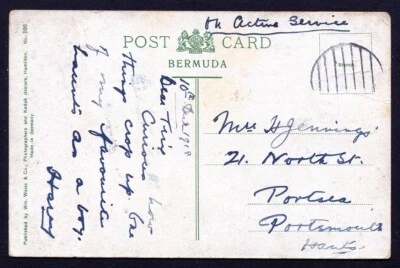 On Active Service
POST CARD
BERMUDA
10th Dec 1918
Dear Tiny
Curious how
things crop up. One
of my favourite
haunts as a boy.
Harry
Mrs H Jennings
21. North St.
Portsea
Portsmouth
Hants.
No. 200
Published by Wm. Weiss & Co., Photographers and Kodak dealers, Hamilton.
Made in Germany